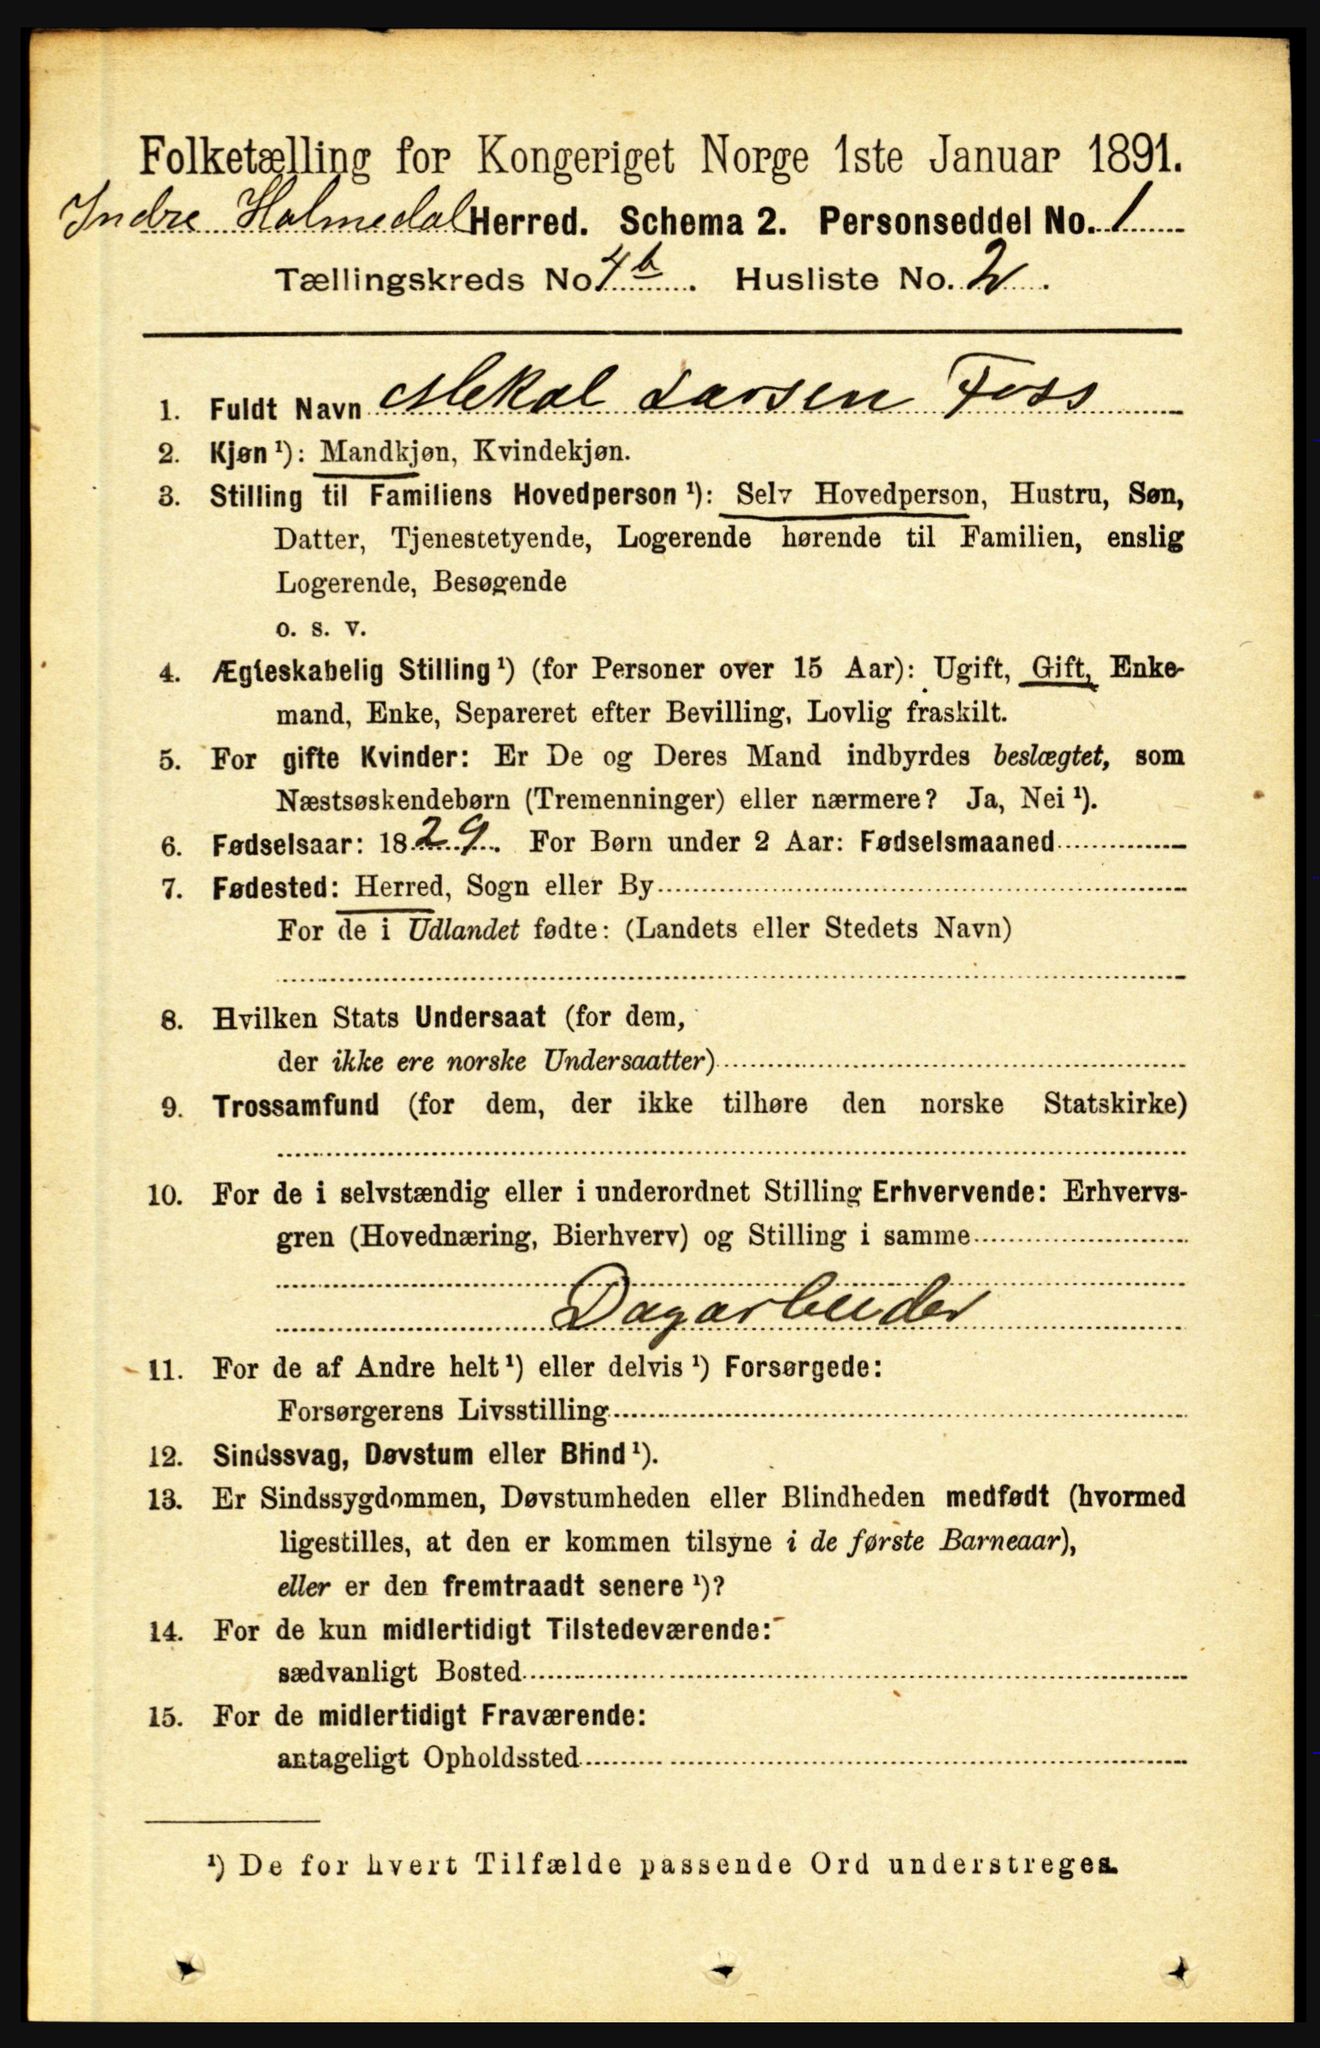 Folketælling for Kongeriget Norge 1ste Januar 1891.
Indre Holmedal Herred. Schema 2. Personseddel No. 1
Tællingskreds No 4b. Husliste No. 2.
1. Fuldt Navn Mekal Larsen Foss
2. Kjøn ¹): Mandkjøn, Kvindekjøn.
3. Stilling til Familiens Hovedperson ¹): Selv Hovedperson, Hustru, Søn,
Datter, Tjenestetyende, Logerende hørende til Familien, enslig
Logerende, Besøgende
o. s. v.
4. Ægteskabelig Stilling ¹) (for Personer over 15 Aar): Ugift, Gift, Enke-
mand, Enke, Separeret efter Bevilling, Lovlig fraskilt.
5. For gifte Kvinder: Er De og Deres Mand indbyrdes beslægtet, som
Næstsøskendebørn (Tremenninger) eller nærmere? Ja, Nei ¹).
6. Fødselsaar: 1829. For Børn under 2 Aar: Fødselsmaaned
7. Fødested: Herred, Sogn eller By
For de i Udlandet fødte: (Landets eller Stedets Navn)
8. Hvilken Stats Undersaat (for dem,
der ikke ere norske Undersaatter)
9. Trossamfund (for dem, der ikke tilhøre den norske Statskirke)
10. For de i selvstændig eller i underordnet Stilling Erhvervende: Erhvervs-
gren (Hovednæring, Bierhverv) og Stilling i samme
Dagarbeider
11. For de af Andre helt ¹) eller delvis ¹) Forsørgede:
Forsørgerens Livsstilling
12. Sindssvag, Døvstum eller Blind ¹).
13. Er Sindssygdommen, Døvstumheden eller Blindheden medfødt (hvormed
ligestilles, at den er kommen tilsyne i de første Barneaar),
eller er den fremtraadt senere ¹)?
14. For de kun midlertidigt Tilstedeværende:
sædvanligt Bosted
15. For de midlertidigt Fraværende:
antageligt Opholdssted
¹) De for hvert Tilfælde passende Ord understreges.